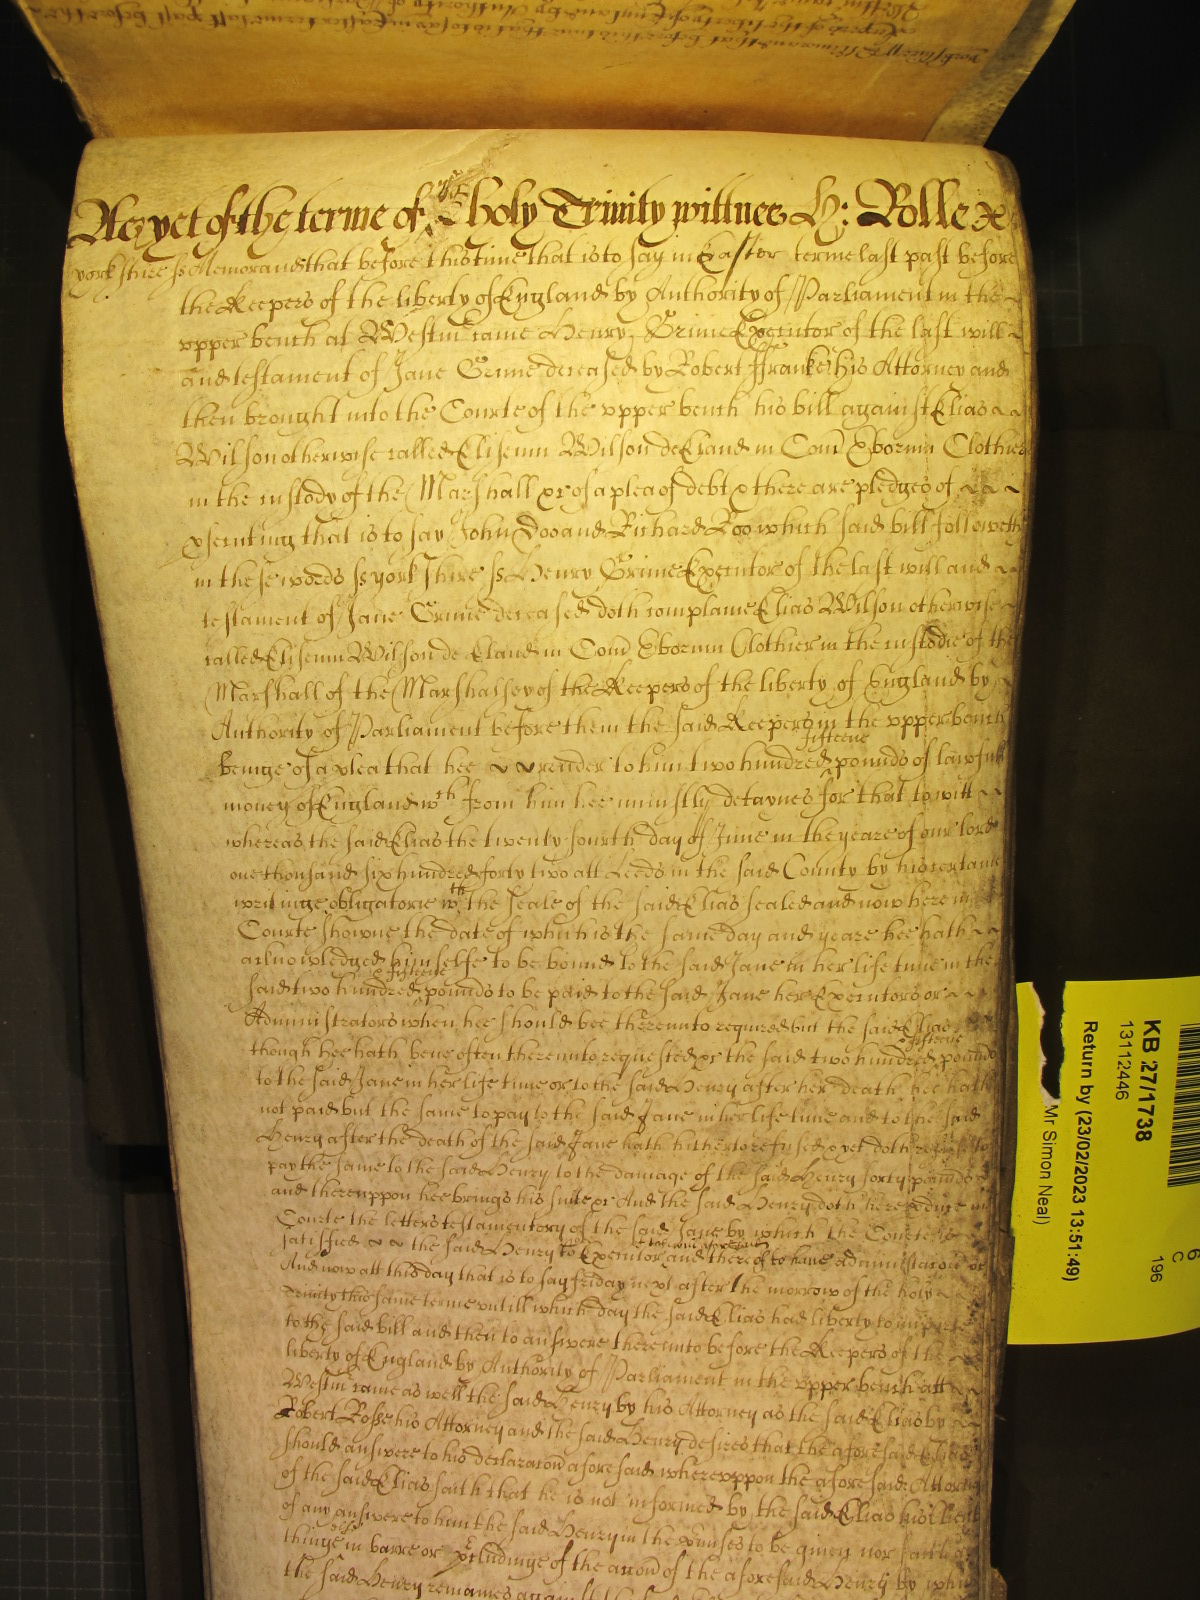 As yet of the terme of the holy Trinity wittnes H: Rolle
yorkshire ss Memorand that before this time that is to say in Easter terme last past before
the Keepers of the liberty of England by Authority of Parliament in the
upper bench at Westm came Henry Grime Executor of the last will
and testament of Jane Grime deceased by Robert ffranke his Attorney and
then brought into the Courte of the upper bench his bill against Elias
Wilson otherwise called Eliseum Wilson de Eland in Com Eborum Clothier
in the custody of the Marshall &c of a plea of debt & there are pledges of
prosecuting that is to say John Doo and Richard Roo which said bill followeth
in these words ss yorkshire ss Henry Grime Executor of the last will and
testament of Jane Grime deceased doth complaine Elias Wilson otherwise
called Eliseum Wilson de Eland in Com Eborum Clothier in the custodie of the
Marshall of the Marshalsey of the Keepers of the liberty of England by
Authority of Parliament before them the said Keepers in the upper bench
fifteene
beinge of a plea that hee render to him two hundred pounds of lawfull
money of England wth from him hee uniustly detaynes for that to witt
whereas the said Elias the twenty fourth day of June in the yeare of our lord
one thousand six hundred forty two att Leeds in the said County by his certaine
writinge obligatorie wth the seale of the said Elias sealed and now here in
Courte showne the date of which is the same day and yeare hee hath
acknowledged himselfe to be bound to the said Jane in her life time in the
& fifteene
said two hundred pounds to be paid to the said Jane her Executors or
Administrators when hee should bee thereunto required but the said Elias
& fifteene
though hee hath bene often thereunto requested &c the said two hundred pounds
to the said Jane in her life time or to the said Henry after her death hee hath
not paid but the same to pay to the said Jane in her life time and to the said
Henry after the death of the said Jane hath hitherto refused & yet doth refuse to
pay the same to the said Henry to the damage of the said Henry forty pounds
and thereuppon hee brings his suite &c And the said Henry doth here produce in
Courte the letters testamentory of the said Jane by which the Courte is
satisfied the said Henry to Executor and thereof to have administracion &c
And now att this day that is to say friday next after the morrow of the holy
Trinity this same terme untill which day the said Elias had liberty to imparle
to the said bill and then to answere thereunto before the Keepers of the
liberty of England by Authority of Parliament in the upper bench att
Westm came as well the said Henry by his Attorney as the said Elias by
Robert Rosse his Attorney and the said Henry desires that the aforesaid Elias
should answere to his declaracon aforesaid whereuppon the aforesaid Attorney
of the said Elias saith that he is not informed by the said Elias his Client
of any answere to him the said Henry in the premises to be given nor saith
thinge in barre or precludinge of the accon of the aforesaid Henry by which
the said Henry remaines against
KB 27/1738
13112446
Return by (23/02/2023 13:51:49)
Mr Simon Neal)
196
C
6